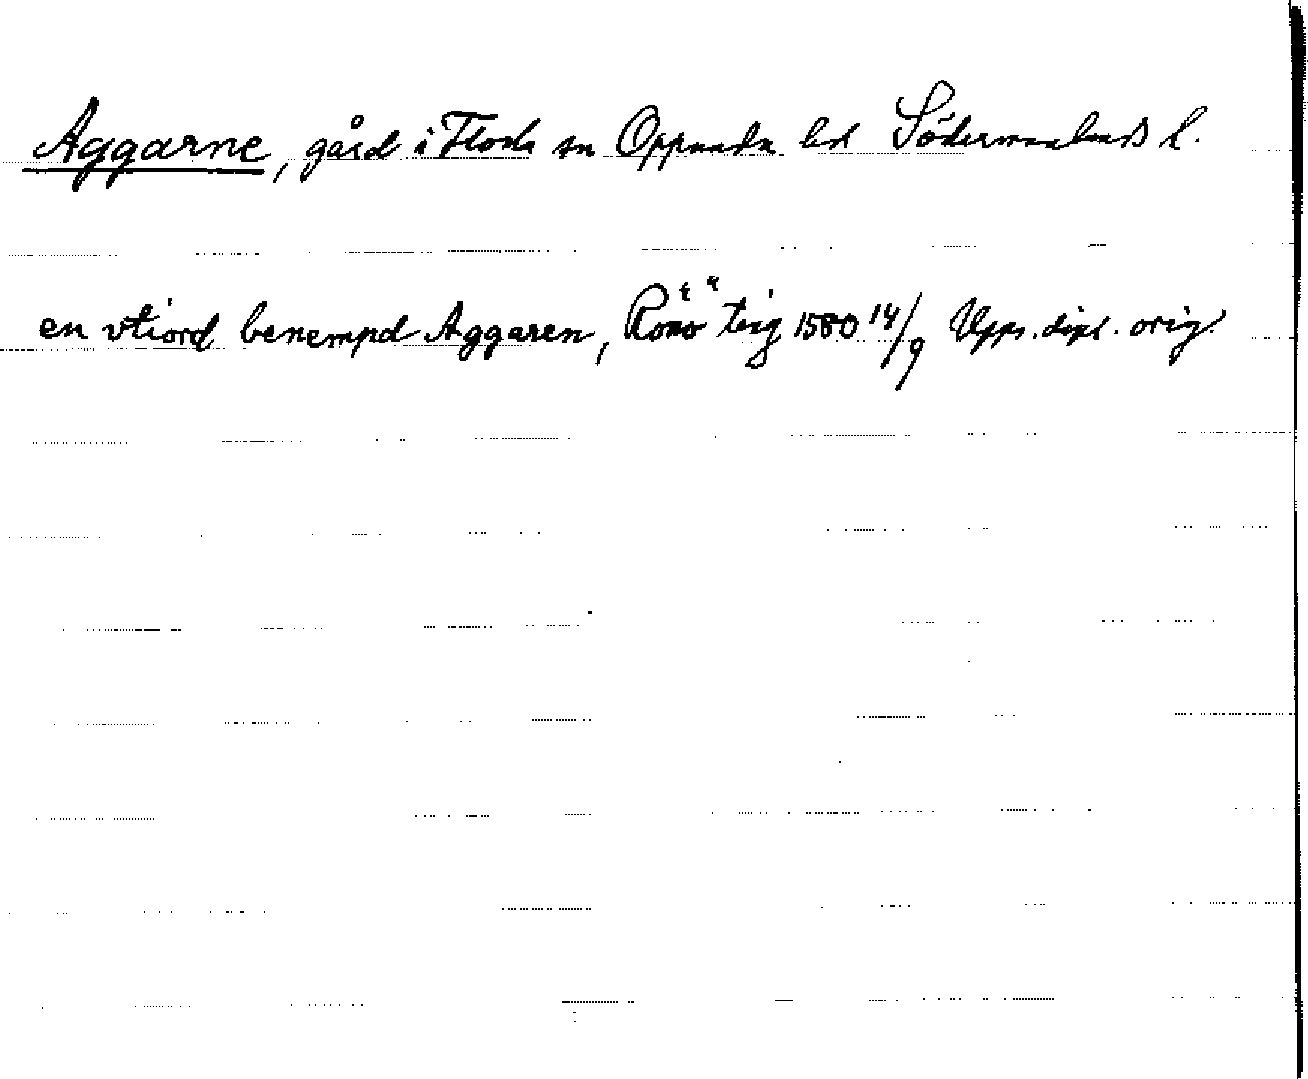 Aggarne, gård i Floda sn Oppunda hd Södermanlands l.
en vtiord benempd Aggaren, Rönö ting 1580 14/9 Upps. dipl. orig.